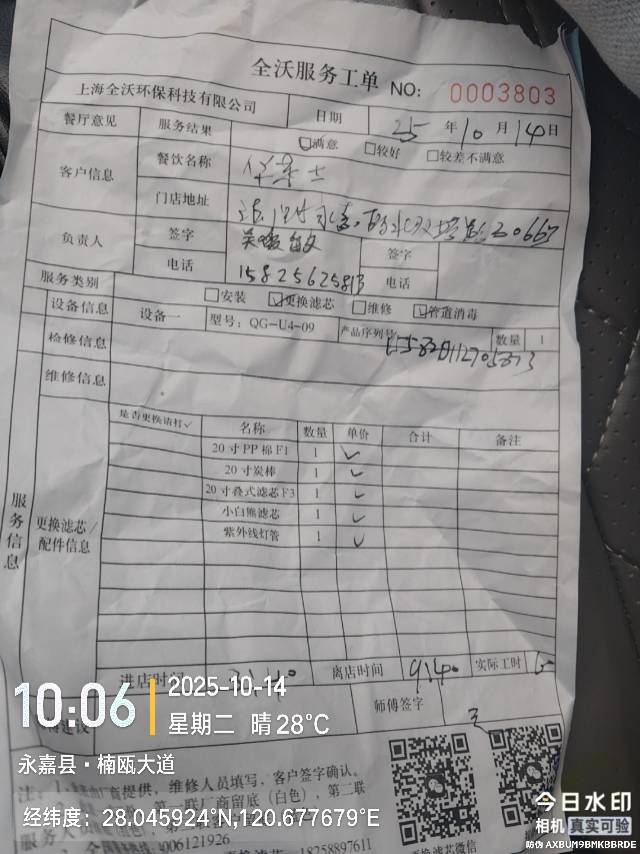 全沃服务工单 NO: 0003803
上海全沃环保科技有限公司 日期 25 年 10 月 14 日
餐厅意见 服务结果 满意 较好 较差不满意
客户信息 餐饮名称
门店地址
负责人 签字 签字
电话 15825625813 电话
服务类别 安装 更换滤芯 维修 管道消毒
设备信息 设备一 型号：QG-U4-09 产品序列号 数量 1
检修信息
维修信息
是否更换请打✓ 名称 数量 单价 合计 备注
20寸PP棉F1 1 ✓
20寸炭棒 1 ✓
20寸叠式滤芯F3 1 ✓
小白熊滤芯 1 ✓
紫外线灯管 1 ✓
服务信息
更换滤芯/
配件信息
进店时间 离店时间 9:40 实际工时
师傅签字
10:06 2025-10-14
星期二 晴 28°C
永嘉县·楠瓯大道
提供，维修人员填写，客户签字确认。
第一联厂商留底（白色），第二联
经纬度：28.045924°N,120.677679°E
4006121926 18258897611
今日水印
相机 真实可验
防伪 AXBUM9BMKBBRDE